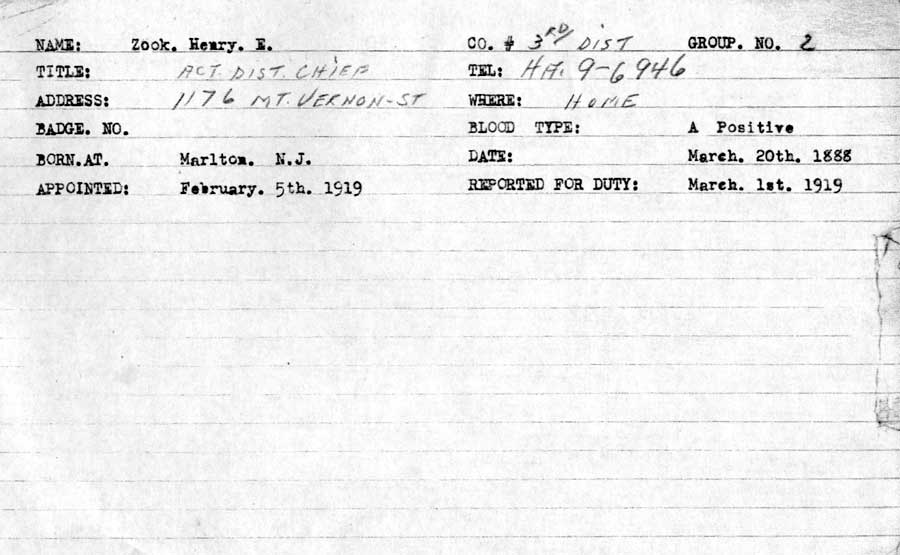 NAME: Zook. Henry. E. CO. # 3RD/ DIST GROUP. NO. 2
TITLE: ACT. DIST. CHIEF TEL: HA. 9-6946
ADDRESS: 1176 MT. VERNON-ST WHERE: HOME
BADGE. NO. BLOOD TYPE: A Positive
BORN.AT. Marlton. N.J. DATE: March. 20th. 1888
APPOINTED: February. 5th. 1919 REPORTED FOR DUTY: March. 1st. 1919